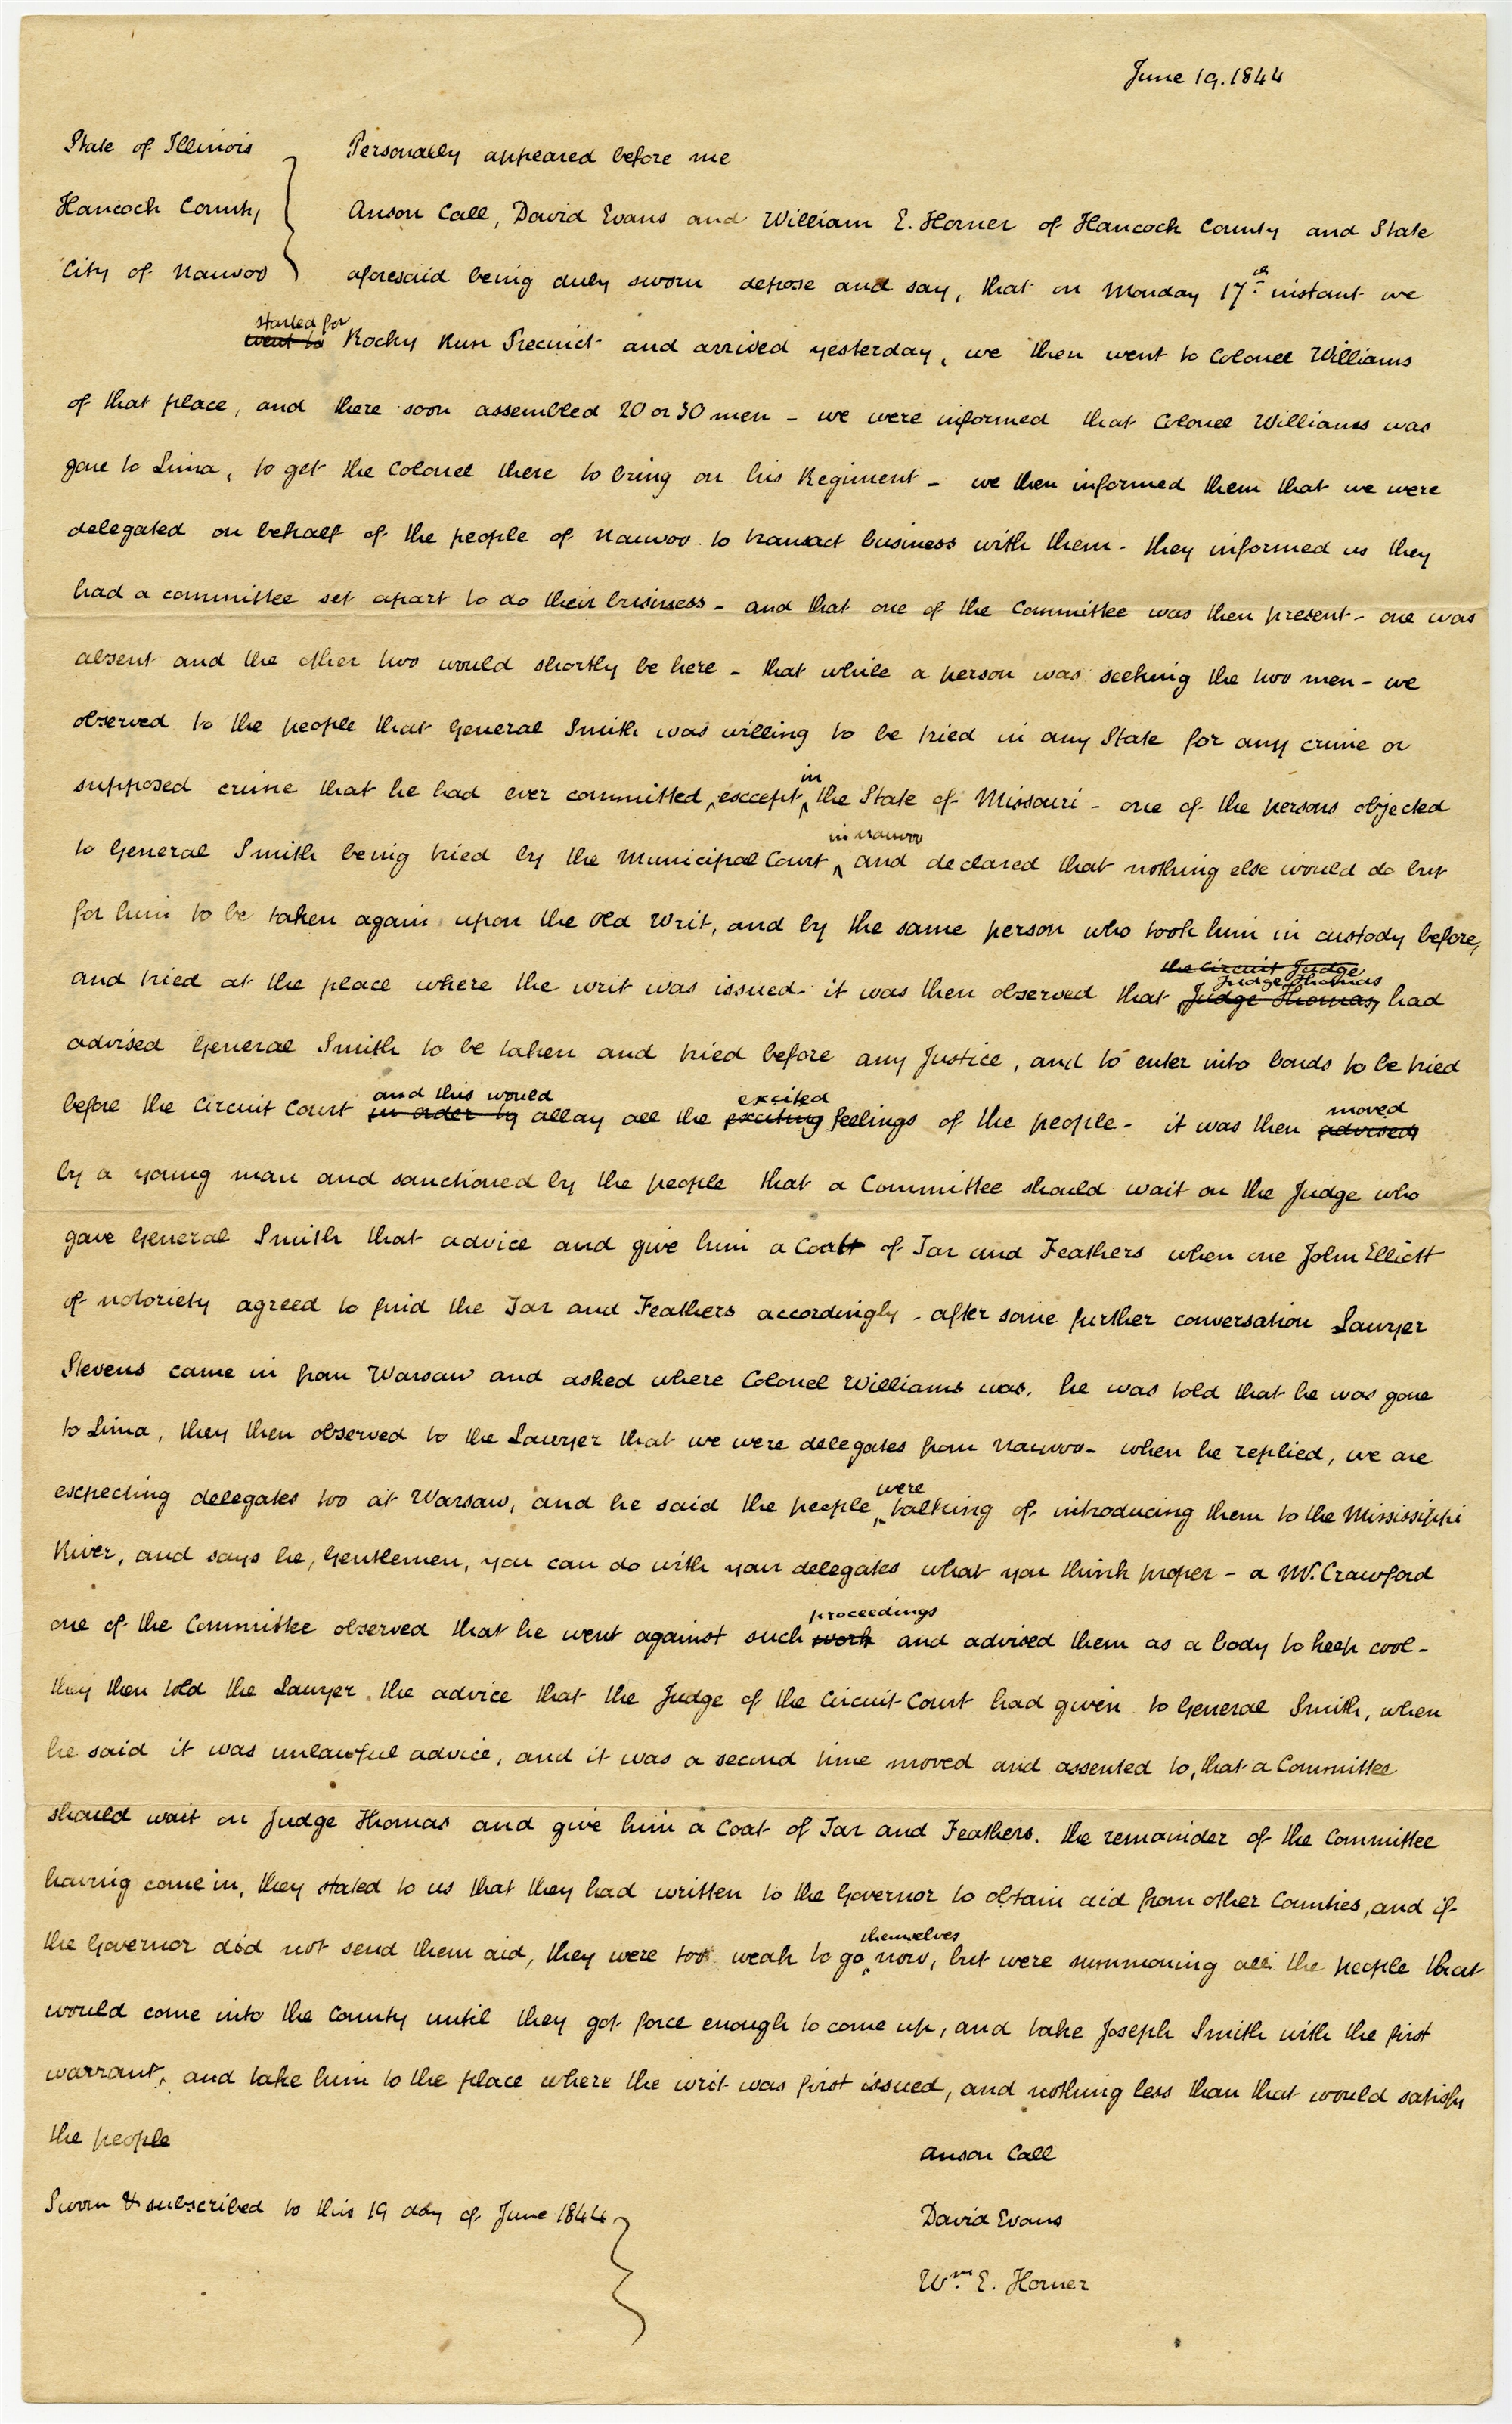 June 19. 1844
State of Illinois
Hancock County
City of Nauvoo
Personally appeared before me
Anson Call, David Evans and William E. Horner of Hancock County and State
aforesaid being duly sworn depose and say, that on Monday 17th instant we
started for
went to Rocky Run Precinct and arrived yesterday, we then went to Colonel Williams
of that place, and there soon assembled 20 or 30 men - we were informed that Colonel Williams was
gone to Lima, to get the Colonel there to bring on his Regiment - we then informed them that we were
delegated on behalf of the people of Nauvoo to transact business with them - they informed us they
had a committee set apart to do their business - and that one of the Committee was then present - one was
absent and the other two would shortly be here - that while a person was seeking the two men - we
observed to the people that General Smith was willing to be tried in any State for any crime or
in
supposed crime that he had ever committed, except the State of Missouri - one of the persons objected
in Nauvoo
to General Smith being tried by the Municipal Court and declared that nothing else would do but
for him to be taken again upon the old Writ, and by the same person who took him in custody before,
the Circuit Judge
Judge Thomas
and tried at the place where the writ was issued - it was then observed that Judge Thomas, had
advised General Smith to be taken and tried before any Justice, and to enter into bonds to be tried
and this would excited moved
before the Circuit Court in order to allay all the exciting feelings of the people - it was then advised
by a young man and sanctioned by the people that a Committee should wait on the Judge who
gave General Smith that advice and give him a Coatt of Tar and Feathers when one John Elliott
of notoriety agreed to find the Tar and Feathers accordingly - after some further conversation Lawyer
Stevens came in from Warsaw and asked where Colonel Williams was, he was told that he was gone
to Lima, they then observed to the Lawyer that we were delegates from Nauvoo - when he replied, we are
were
expecting delegates too at Warsaw, and he said the people talking of introducing them to the Mississippi
River, and says he, Gentlemen, you can do with your delegates what you think proper - a Mr. Crawford
proceedings
one of the Committee observed that he went against such work and advised them as a body to keep cool -
they then told the Lawyer the advice that the Judge of the Circuit Court had given to General Smith, when
he said it was unlawful advice, and it was a second time moved and assented to, that a Committee
should wait on Judge Thomas and give him a Coat of Tar and Feathers. the remainder of the Committee
having come in, they stated to us that they had written to the Governor to obtain aid from other Counties, and if
themselves
the Governor did not send them aid, they were too weak to go now, but were summoning all the people that
would come into the County until they got force enough to come up, and take Joseph Smith with the first
warrant, and take him to the place where the writ was first issued, and nothing less than that would satisfy
the people
Anson Call
Sworn & subscribed to this 19 day of June 1844
David Evans
Wm. E. Horner